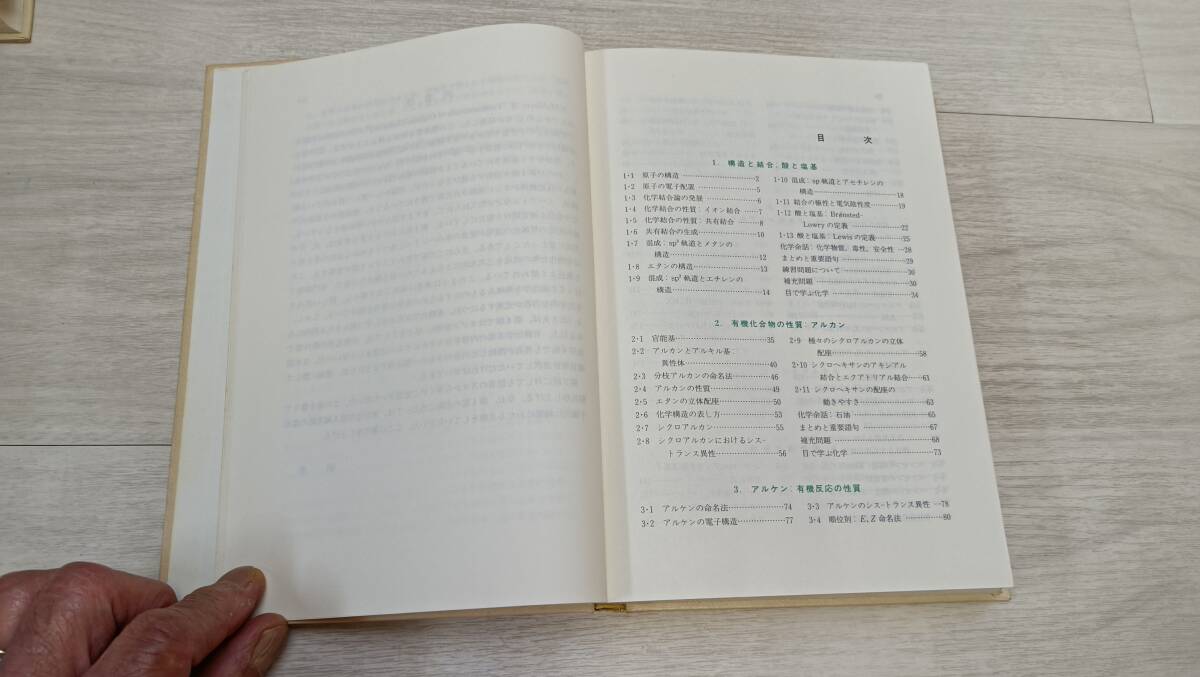 目 次
1. 構造と結合；酸と塩基
1・1 原子の構造 ……………… 2
1・2 原子の電子配置 ……………… 5
1・3 化学結合論の発展 ……………… 6
1・4 化学結合の性質：イオン結合 ……7
1・5 化学結合の性質：共有結合 ……… 8
1・6 共有結合の生成 ……………… 10
1・7 混成：sp³ 軌道とメタンの
構造 ……………… 12
1・8 エタンの構造 ……………… 13
1・9 混成：sp² 軌道とエチレンの
構造 ……………… 14
1・10 混成：sp 軌道とアセチレンの
構造 ……………… 18
1・11 結合の極性と電気陰性度 ……… 19
1・12 酸と塩基：Brønsted-
Lowry の定義 ……………… 22
1・13 酸と塩基：Lewis の定義 ……… 25
化学余話：化学物質，毒性，安全性 …28
まとめと重要語句 ……………… 29
練習問題について ……………… 30
補充問題 ……………… 30
目で学ぶ化学 ……………… 34
2. 有機化合物の性質：アルカン
2・1 官能基 ……………… 35
2・2 アルカンとアルキル基：
異性体 ……………… 40
2・3 分枝アルカンの命名法 ……… 46
2・4 アルカンの性質 ……………… 49
2・5 エタンの立体配座 ……………… 50
2・6 化学構造の表し方 ……………… 53
2・7 シクロアルカン ……………… 55
2・8 シクロアルカンにおけるシス-
トランス異性 ……………… 56
2・9 種々のシクロアルカンの立体
配座 ……………… 58
2・10 シクロヘキサンのアキシアル
結合とエクアトリアル結合 ……61
2・11 シクロヘキサンの配座の
動きやすさ ……………… 63
化学余話：石油 ……………… 65
まとめと重要語句 ……………… 67
補充問題 ……………… 68
目で学ぶ化学 ……………… 73
3. アルケン：有機反応の性質
3・1 アルケンの命名法 ……………… 74
3・2 アルケンの電子構造 ……………… 77
3・3 アルケンのシス-トランス異性 …78
3・4 順位則：E, Z 命名法 ……… 80